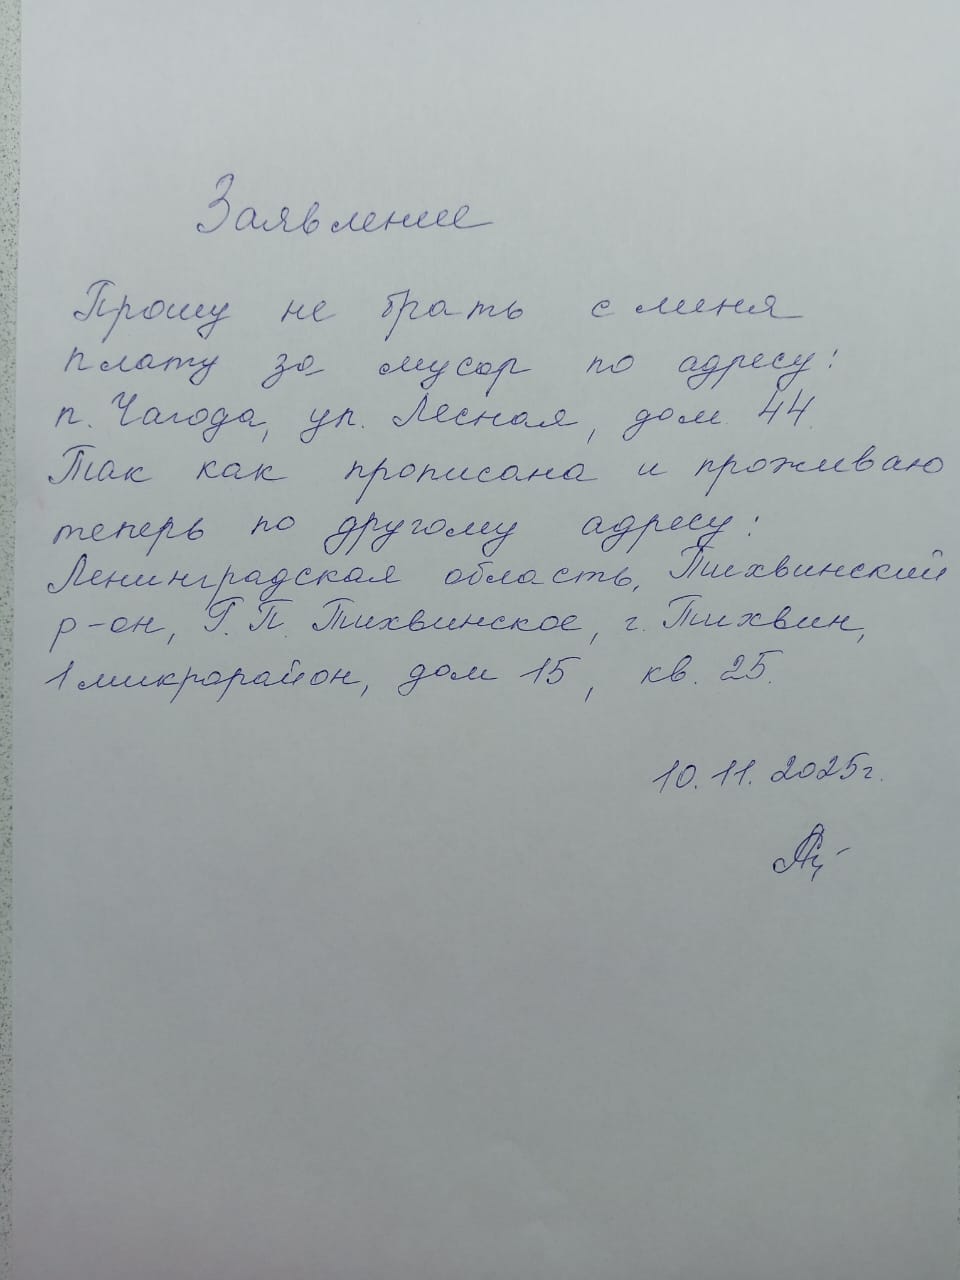 Заявление
Прошу не брать с меня
плату за мусор по адресу:
п. Чагода, ул. Лесная, дом 44.
Так как прописана и проживаю
теперь по другому адресу:
Ленинградская область, Тихвинский
р-он, Г.П. Тихвинское, г. Тихвин,
1 микрорайон, дом 15, кв. 25.
10.11.2025г.